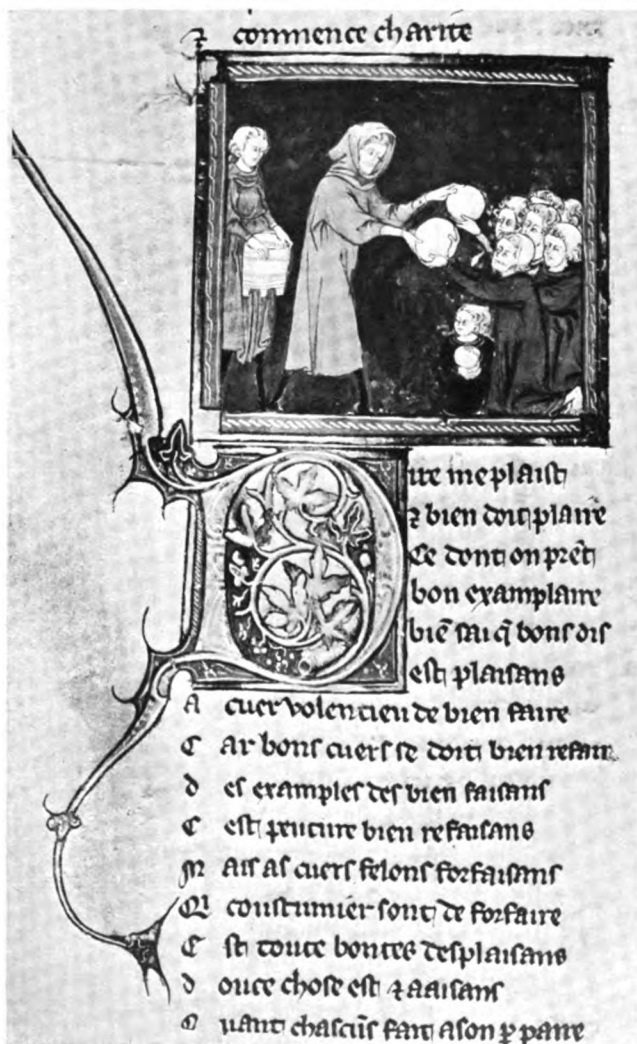 ⁊ commence charite
Dire me plaist
⁊ bien doit plaire
Ce dont on prẽt
bon examplaire
biẽ sai q̃ bons dis
est plaisans
A cuer volentieu de bien faire
Car bons cuers se doit bien refaire
des examples des bien faisans
Cest peuture bien refaisans
Mais as cuers felons forfaisans
Qi coustumier sont de forfaire
Est toute bontes desplaisans
douce chose est ⁊ aaisans
Quant chascũs fait a son ꝑ paire